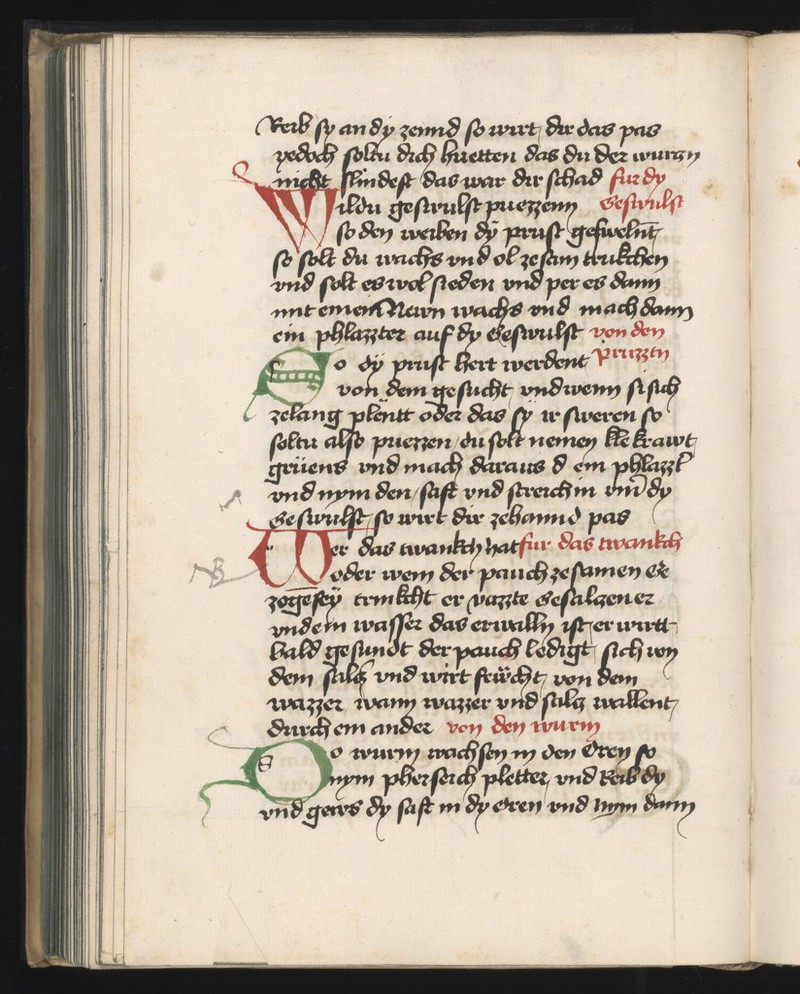 Reib sy an dy zennd so wirt dir das pas
yedoch soltu dich huetten das du der wurm
nicht slindest das war dir schad fur dy
Wildu geswulst puezzenn Geswulst
so den weiben dy prust geswelnt
so solt du wachs vnd ol zesam trukchen
vnd solt es wol sieden vnd per es dann
mit einem Newn wachs vnd mach dann
ein phlazzter auf dy Geswulst von den
So dy prust hert werdent pruzztn
von dem gesucht vnd wenn si sich
zelang plentt oder das sy ir sweren so
soltu also puezzen du solt nemen kle krawt
grüens vnd mach daraus d ein phlazzt
vnd nym den saft vnd streich in vm dy
Geswulst so wirt dir zehannd pas
Wer das twankch hat fur das twankch
oder wem der pauch zesamen
zogē sey trinkcht er vazzte Gesalzener
vnd ein wasser das erwalln ist er wirtt
bald gesundt der pauch ledigt sich von
dem salcz vnd wirt fewcht von dem
wazzer wann wazzer vnd salcz wallent
durch ein ander von den wurm
So wurm wachsen in den Oren so
nym phersich pletter vnd Reib dy
vnd gews dy saft in dy Oren vnd nym dann